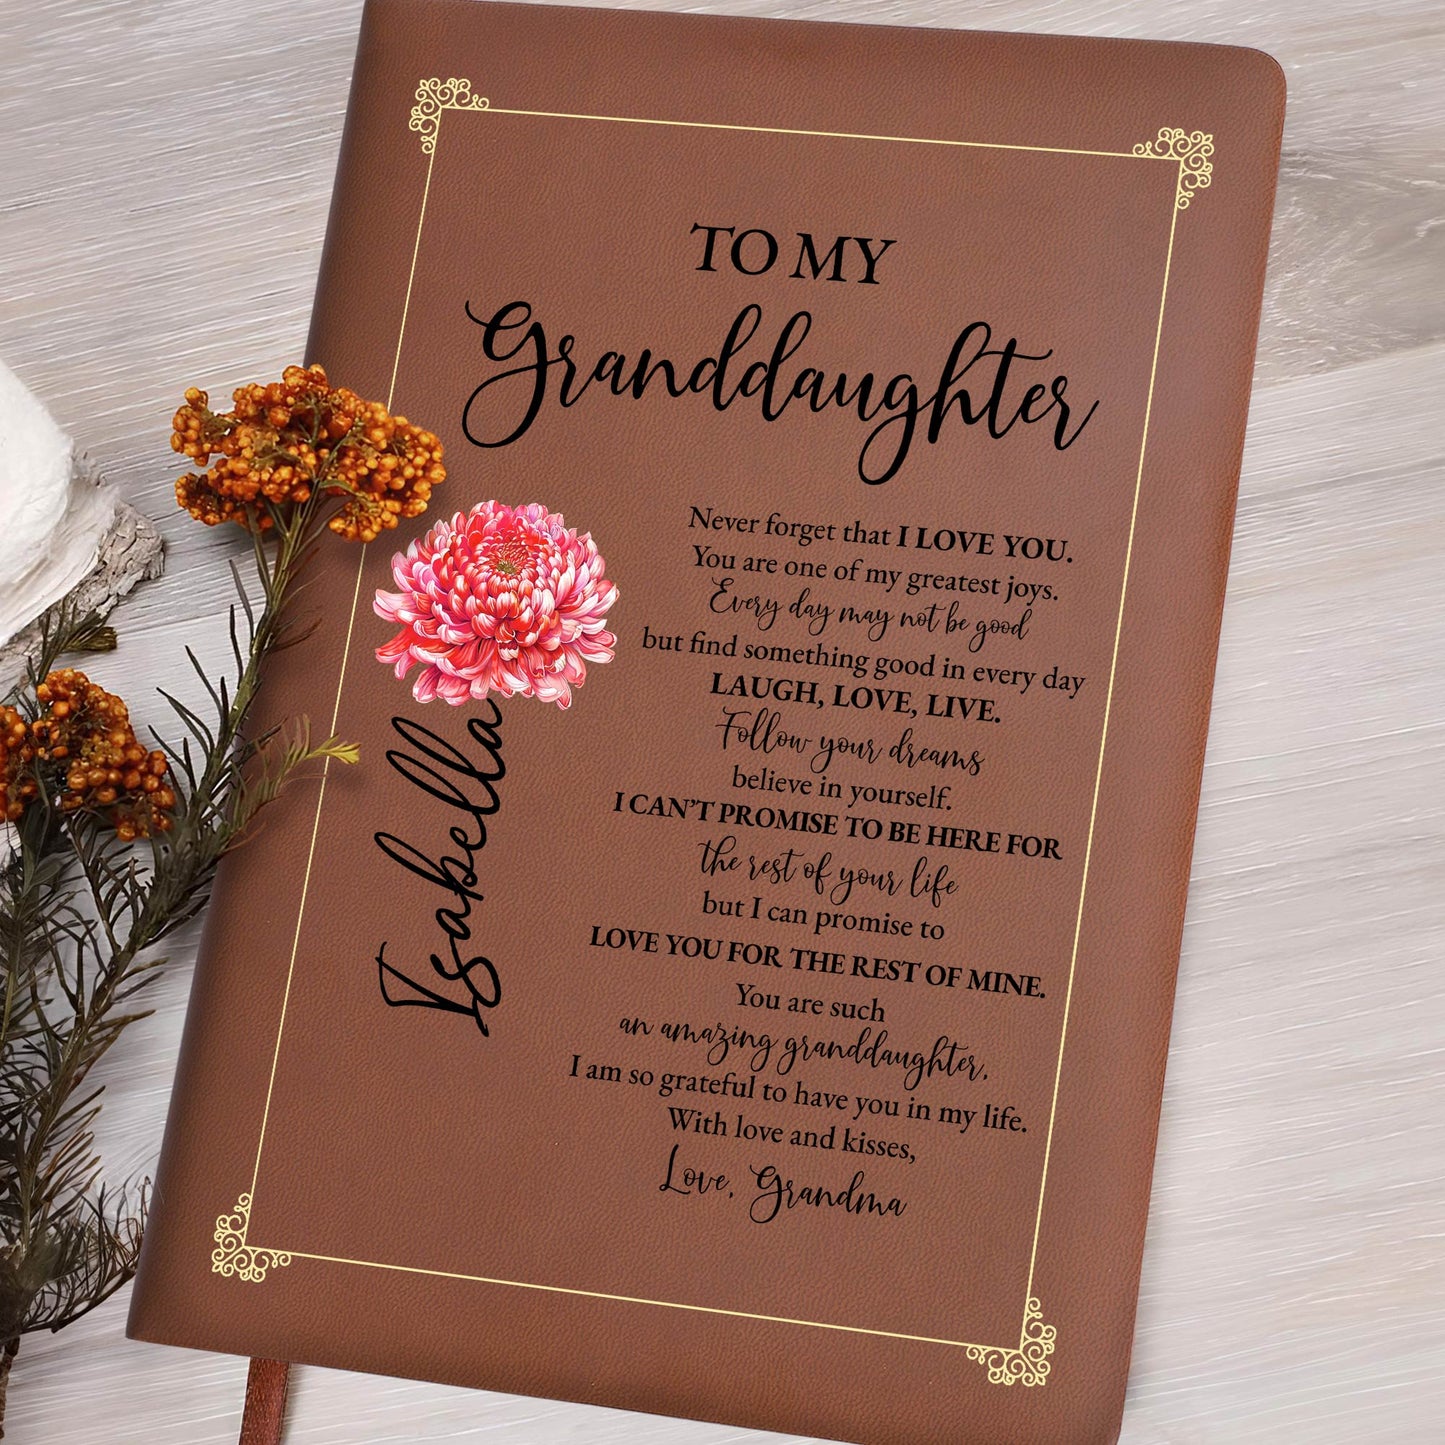 TO MY
Granddaughter
Never forget that I LOVE YOU.
You are one of my greatest joys.
Every day may not be good
but find something good in every day
LAUGH, LOVE, LIVE.
Follow your dreams
believe in yourself.
I CAN'T PROMISE TO BE HERE FOR
the rest of your life
but I can promise to
LOVE YOU FOR THE REST OF MINE.
You are such
an amazing granddaughter,
I am so grateful to have you in my life.
With love and kisses,
Love, Grandma
Isabella